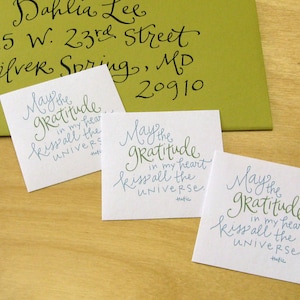 Dahlia Lee
5 W. 23rd Street
ilver Spring, MD
20910
May the
gratitude
in my heart
kiss all the
universe
Hafiz
May the
gratitude
in my heart
kiss all the
universe
Hafiz
May the
gratitude
in my hear
kiss all the
universe
Hafiz